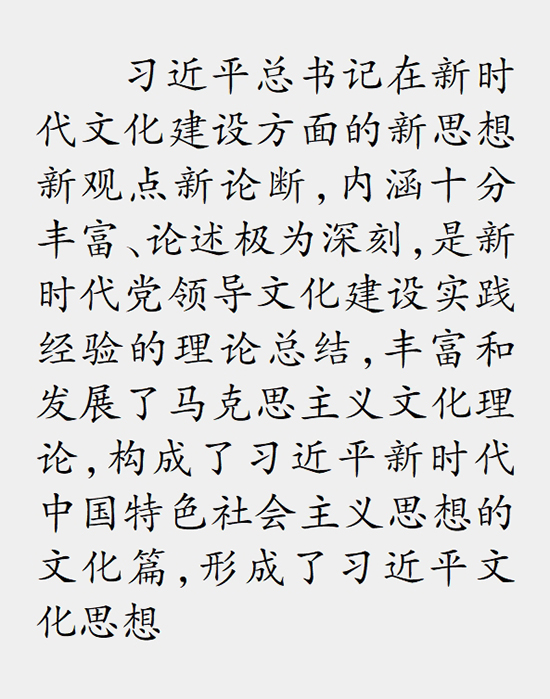 习近平总书记在新时
代文化建设方面的新思想
新观点新论断,内涵十分
丰富、论述极为深刻,是新
时代党领导文化建设实践
经验的理论总结,丰富和
发展了马克思主义文化理
论,构成了习近平新时代
中国特色社会主义思想的
文化篇,形成了习近平文
化思想